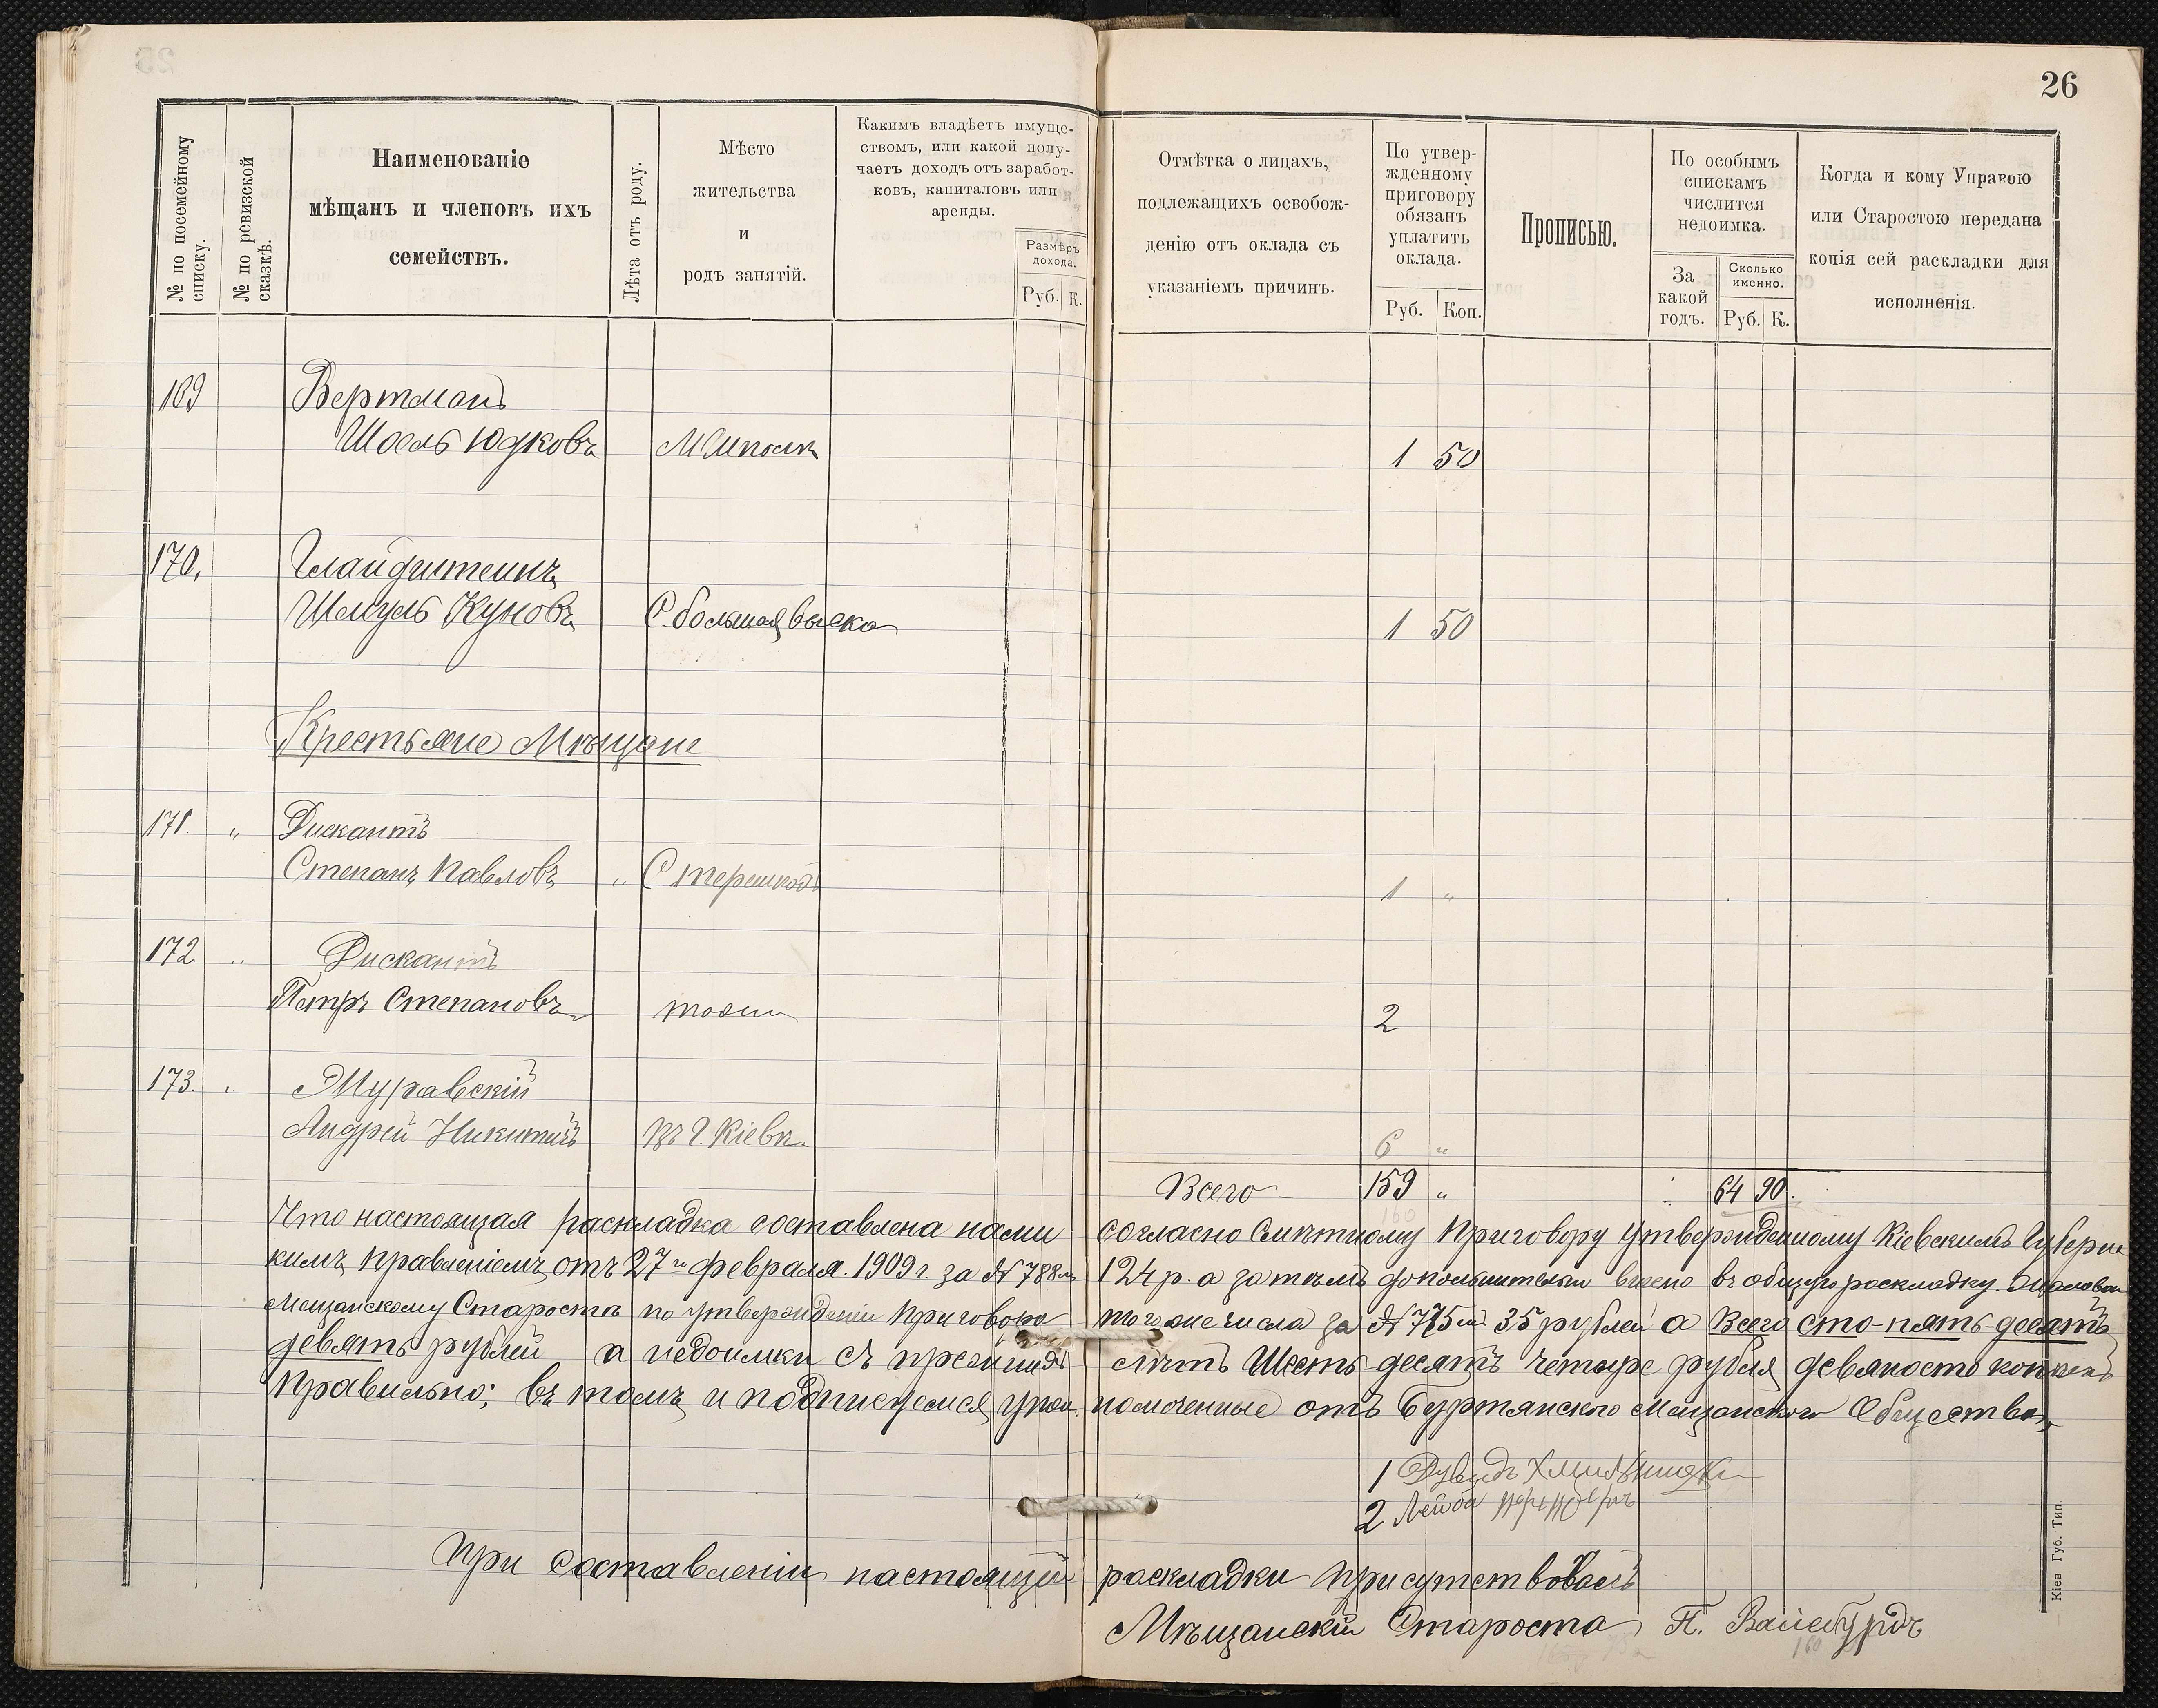 26
№ по посемейному списку.
№ по ревизской сказкѣ.
Наименованіе
мѣщанъ и членовъ ихъ
семействъ.
Лѣта отъ роду.
Мѣсто
жительства
и
родъ занятій.
Какимъ владѣетъ имуще-
ствомъ, или какой полу-
чаетъ доходъ отъ заработ-
ковъ, капиталовъ или
аренды.
Размѣръ
дохода.
Руб. К.
Отмѣтка о лицахъ,
подлежащихъ освобож-
денію отъ оклада съ
указаніемъ причинъ.
По утвер-
жденному
приговору
обязанъ
уплатить
оклада.
Руб. Коп.
Прописью.
По особымъ
спискамъ
числится
недоимка.
За
какой
годъ.
Сколько
именно.
Руб. К.
Когда и кому Управою
или Старостою передана
копія сей раскладки для
исполненія.
169 Вертманъ
Шоель Юдковъ 1 50
170,
Шмуль Куновъ С. большая 1 50
Крестьяне Мѣщане
171. " Дискантъ
Степанъ Павловъ " 1 "
172. " Дискантъ
Петръ Степановъ тоже 2
173. " Муравскій
Андрей Никитинъ въ г. Кіевѣ 6 "
Всего 159 " 64 90.
Что настоящая раскладка составлена нами согласно Смѣтному Приговору утвержденному Кіевскимъ Губернс
кимъ Правленіемъ отъ 27го февраля 1909 г. за № 788мъ 124 р. а затѣмъ дополнительно внесено въ общую раскладку
Мещанскому Старостѣ по утвержденіи приговора того же числа за № 775мъ 35 рублей а Всего сто-пять-десятъ
девять рублей а недоимки съ прежнихъ лѣтъ Шесть-десятъ четыре рубля девяносто копѣекъ
Правильно; въ томъ и подписуемся упол номоченные отъ Буртянского Мещанского Общества,
1
2 Лейба
При составленіи настоящей раскладки присутствовалъ
Мѣщанскій Староста П. Вайсбурдъ
Кіев Губ. Тип.